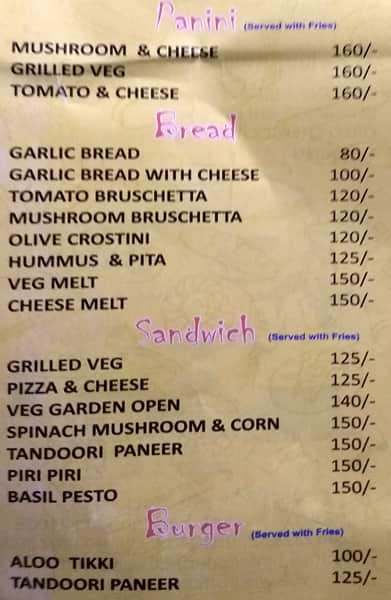 Panini (Served with Fries)
MUSHROOM & CHEESE 160/-
GRILLED VEG 160/-
TOMATO & CHEESE 160/-
Bread
GARLIC BREAD 80/-
GARLIC BREAD WITH CHEESE 100/-
TOMATO BRUSCHETTA 120/-
MUSHROOM BRUSCHETTA 120/-
OLIVE CROSTINI 120/-
HUMMUS & PITA 125/-
VEG MELT 150/-
CHEESE MELT 150/-
Sandwich (Served with Fries)
GRILLED VEG 125/-
PIZZA & CHEESE 125/-
VEG GARDEN OPEN 140/-
SPINACH MUSHROOM & CORN 150/-
TANDOORI PANEER 150/-
PIRI PIRI 150/-
BASIL PESTO 150/-
Burger (Served with Fries)
ALOO TIKKI 100/-
TANDOORI PANEER 125/-